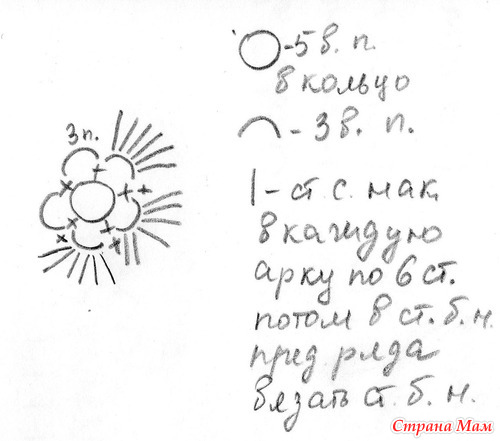 -5 в. п.
в кольцо
3 п.
- 3 в. п.
- ст. с. нак
в каждую
арку по 6 ст.
потом в ст. б. н.
пред ряда
вязать ст. б. н.
Страна Мам